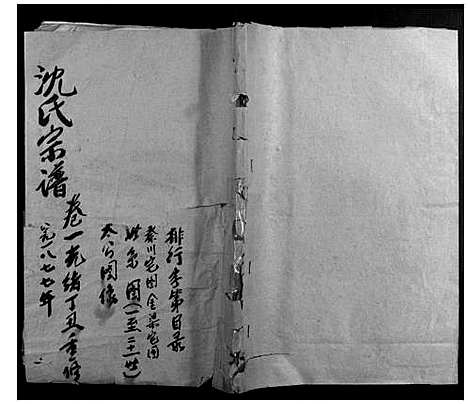 沈氏宗谱
卷一 光绪丁丑重修
公元一八七七年
排行字第目录
秦川宅图 金溪宅图
世系图(一至二十一世)
太公图像